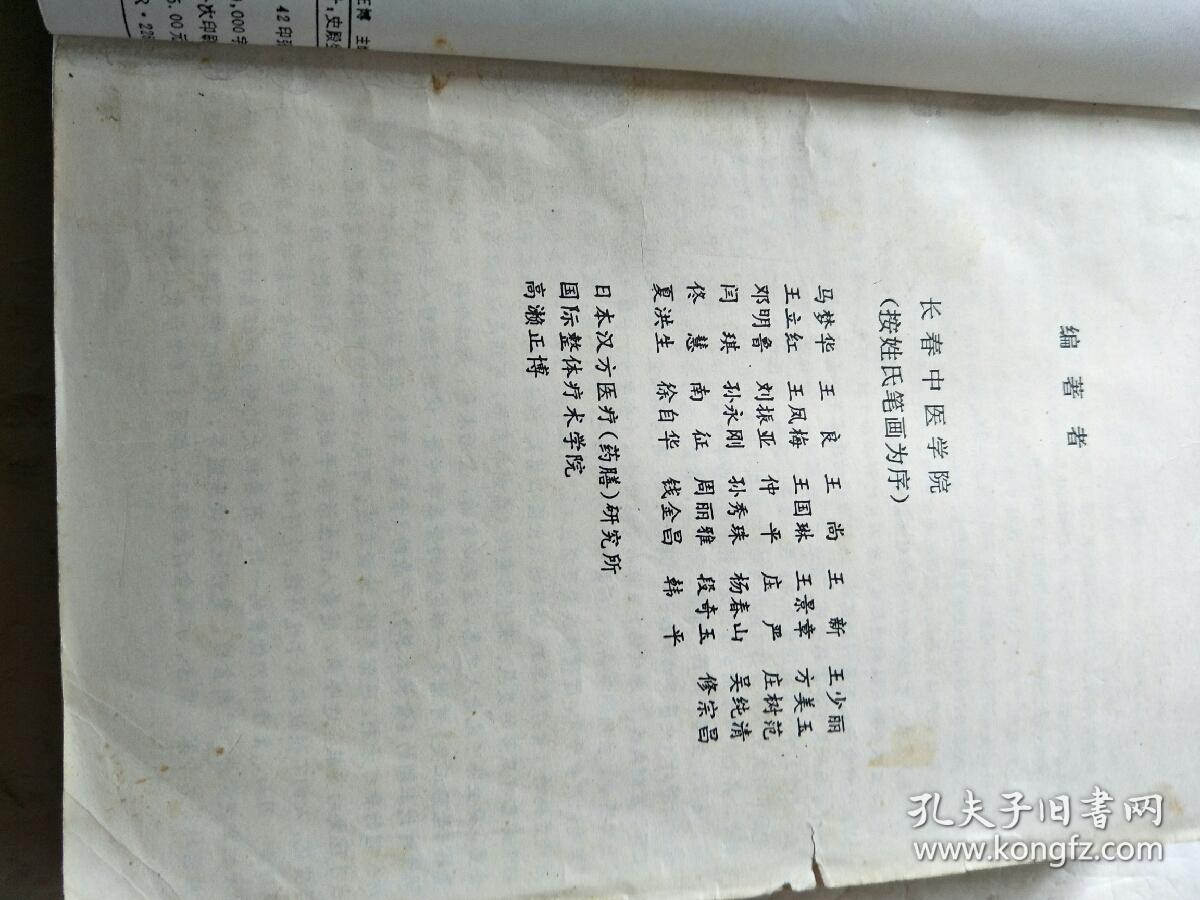 编著者
长春中医学院
(按姓氏笔画为序)
马梦华 王良 王尚 王新 王少丽
王立红 王凤梅 王国琳 王景章 方美玉
邓明鲁 刘振亚 仲平 庄严 庄树范
闫琪 孙永刚 孙秀珠 杨春山 吴纯清
佟慧 南征 周丽雅 段奇玉 修宗昌
夏洪生 徐自华 钱金昌 韩平
日本汉方医疗(药膳)研究所
国际整体疗术学院
高濑正博
正博
史殿
42印张
,000字
次印刷
5.00元
孔夫子旧书网
www.kongfz.com